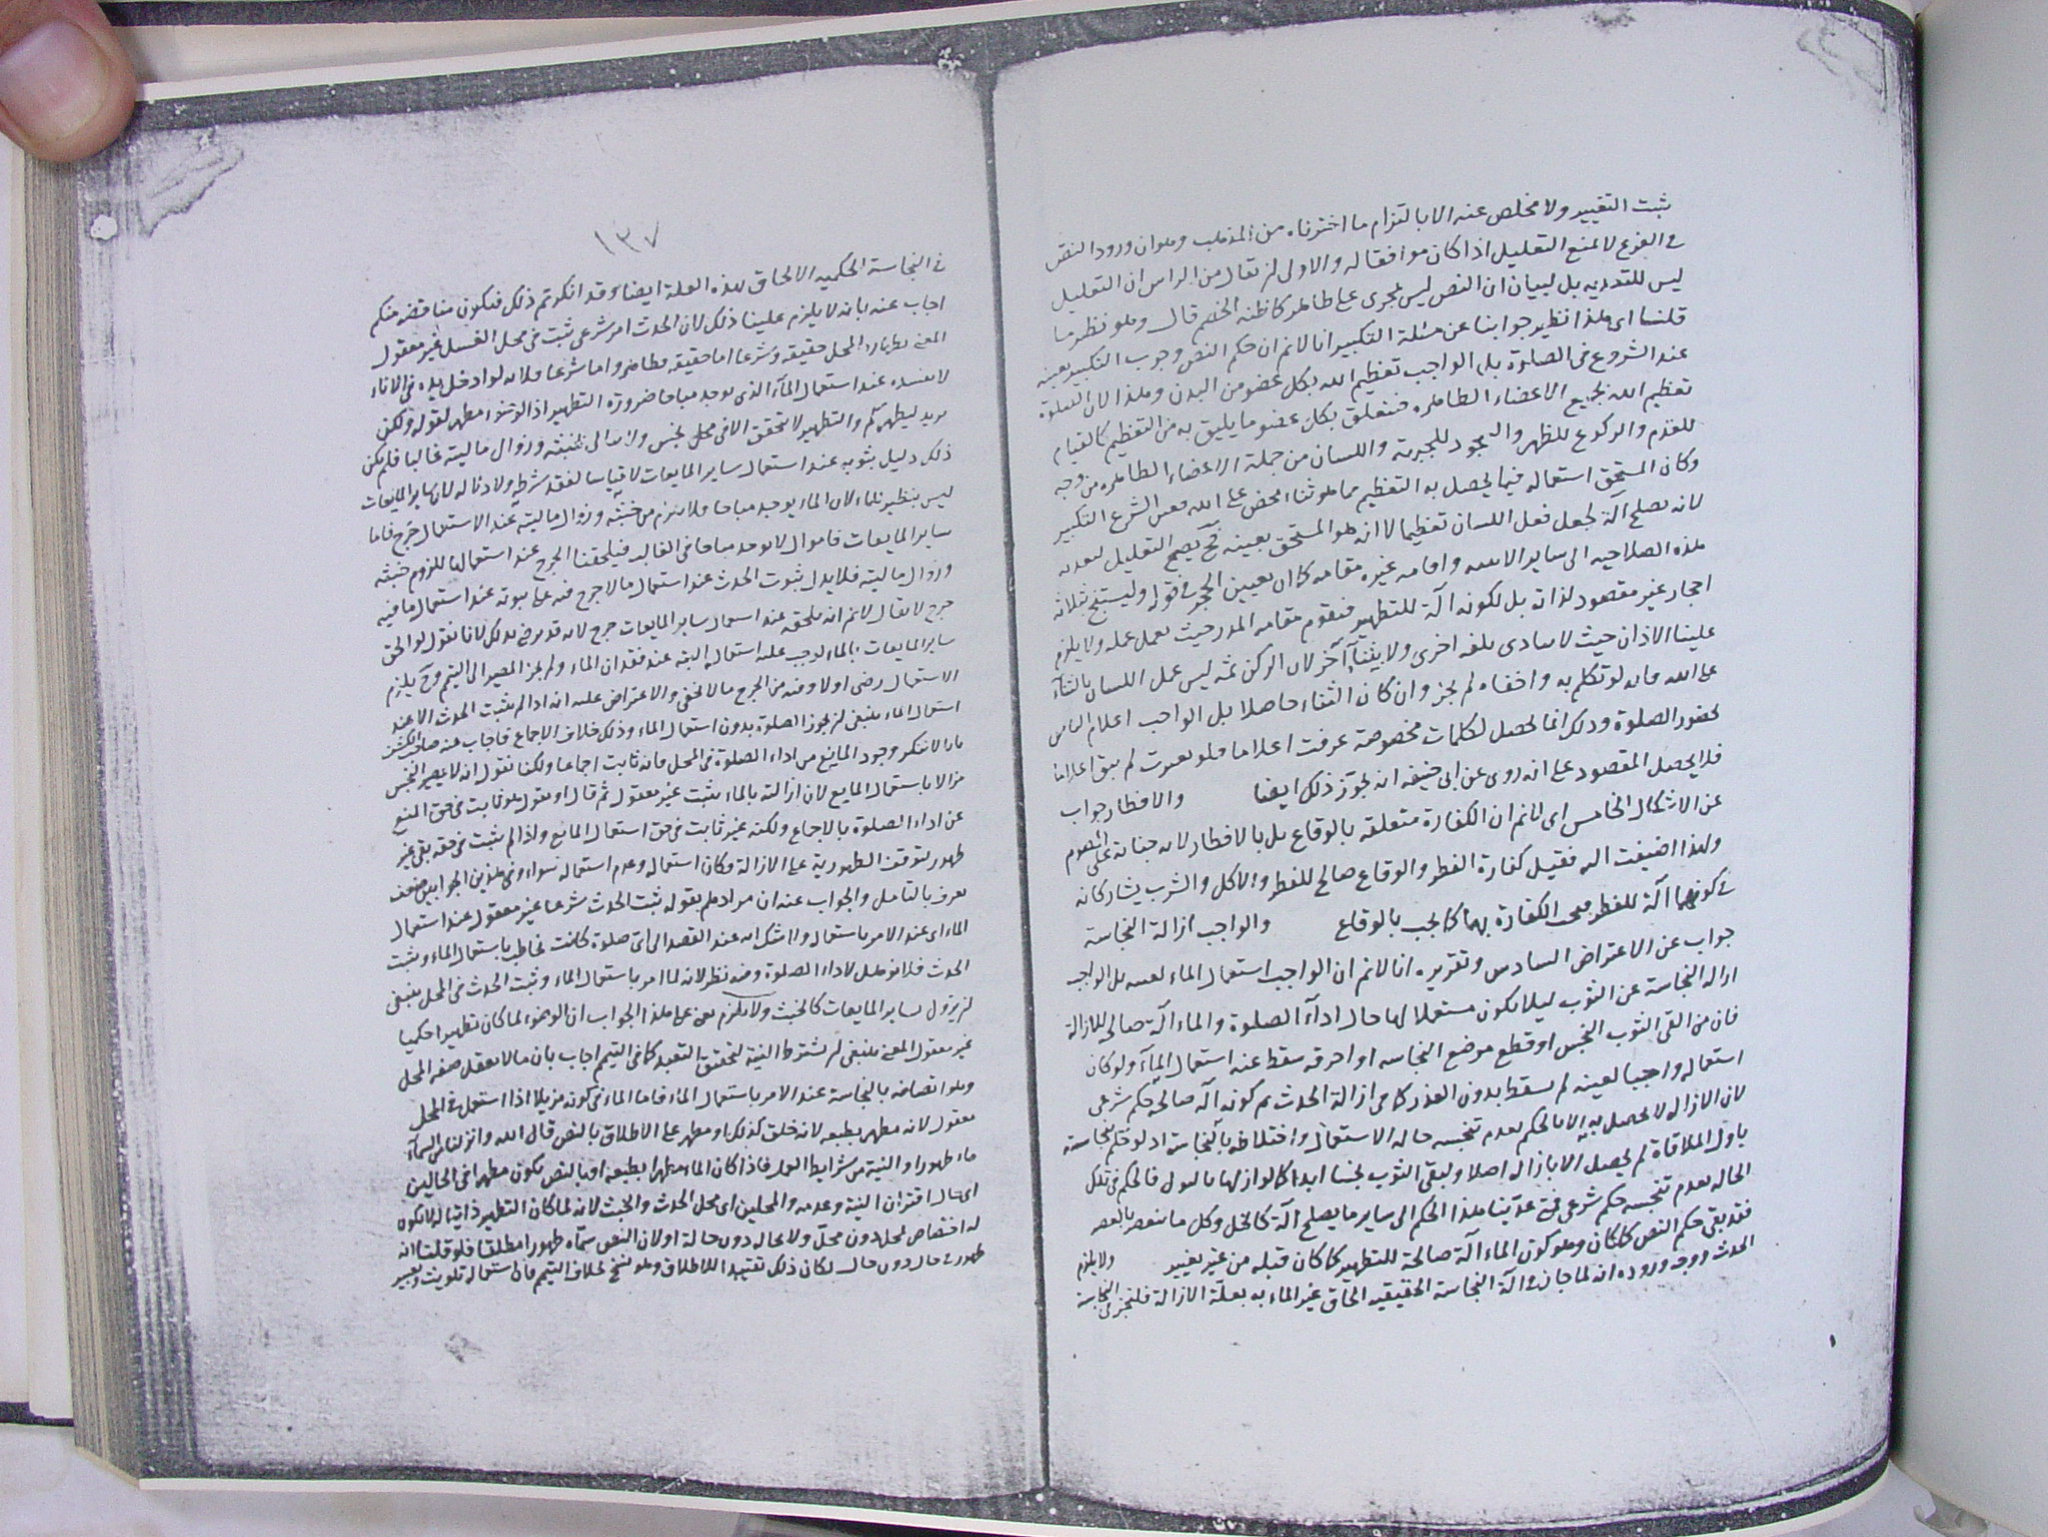 ثبت التقييد ولا مخلص عنه الا بالتزام ما اخترناه من المذهب وهو ان ورود النص
في الفرع لا يمنع التعليل اذا كان موافقا له والاولى ان يقال من الراس ان التعليل
ليس للتعديه بل لبيان ان النص ليس بمجرى على ظاهره كما ظنه الخصم قال وهو نظير ما
قلنا اى هذا نظير جوابنا عن مسئلة التكبير انا لا نم ان حكم النص وجوب التكبير بعينه
عند الشروع في الصلوة بل الواجب تعظيم الله بكل عضو من البدن وهذا لان الصلوة
تعظيم الله بجميع الاعضاء الطاهره فيتعلق بكل عضو ما يليق به من التعظيم كالقيام
للقدم والركوع للظهر والسجود للجبهة واللسان من جملة الاعضاء الطاهره من وجه
وكان المستحق استعماله فيما يحصل به التعظيم مما هو ثناء محض على الله فعين الشرع التكبير
لانه يصلح آلة لجعل فعل اللسان تعظيما لا انه هو المستحق بعينه فح يصح التعليل لتعديه
هذه الصلاحيه الى ساير الاثنيه واقامه غيره مقامه كما ان تعيين الحجر في قوله وليستنج بثلاثة
احجار غير مقصود لذاته بل لكونه آلة للتطهير فيقوم مقامه المدر حيث يعمل عمله ولا يلزم
علينا الاذان حيث لا يتادى بلغه اخرى ولا بثناء آخر لان الركن ثمه ليس عمل اللسان بالثناء
على الله فانه لو تكلم به واخفاه لم يجز وان كان الثناء حاصلا بل الواجب اعلام الناس
لحضور الصلوة وذلك انما يحصل لكلمات مخصوصة عرفت اعلاما فلو غيرت لم يبق اعلاما
فلا يحصل المقصود على انه روى عن ابى حنيفه انه يجوز ذلك ايضا والافطار جواب
عن الاشكال الخامس اى لا نم ان الكفارة متعلقه بالوقاع بل بالافطار لانه جناية على الصوم
ولهذا اضيفت اليه فقيل كفارة الفطر والوقاع صالح للفطر والاكل والشرب يشاركانه
في كونهما آلة للفطر فيجب الكفارة بهما كما يجب بالوقاع والواجب ازالة النجاسة
جواب عن الاعتراض السادس وتقريره انا لا نم ان الواجب استعمال الماء لعينه بل الواجب
ازاله النجاسة عن الثوب ليلا يكون مستعملا لها حال اداء الصلوة والماء آلة صالحة للازالة
فان من القى الثوب النجس او قطع موضع النجاسه او احرقه سقط عنه استعمال الماء ولو كان
استعماله واجبا لعينه لم يسقط بدون العذر كما في ازالة الحدث ثم كونه آلة صالحة حكم شرعى
لان الازاله لا تحصل به الا بالحكم بعدم تنجسه حاله الاستعمال واختلاطه بالنجاسة اذ لو حكم بنجاسة
باول الملاقاة لم يحصل الا بازاله اصلا وبقى الثوب نجسا ابدا كما لو ازيلها بالبول فالحكم في تلك
الحاله بعدم تنجسه حكم شرعى فح عدينا هذا الحكم الى ساير ما يصلح آلة كالخل وكل ما ينعصر بالعصر
فقد بقى حكم النص كما كان وهو كون الماء آلة صالحة للتطهير كما كان قبله من غير تغيير ولا يلزم
الحدث ووجه وروده انه لما جاز في آلة النجاسة الحقيقيه الحاق غير الماء به بعلة الازالة فليجز في النجاسة
١٣٧
في النجاسة الحكميه الالحاق بهذه العلة ايضا وقد انكرتم ذلك فيكون مناقضه منكم
اجاب عنه بانه لا يلزم علينا ذلك لان الحدث امر شرعى ثبت في محل الغسل غير معقول
المعنى بطهارة المحل حقيقه وشرعا اما حقيقه فظاهر واما شرعا فلانه لو ادخل يده في الاناء
لا يفسده عند استعمال الماء الذى يوجد مباحا ضرورة التطهير اذ الوضوء مطهر لقوله ولكن
يريد ليطهركم والتطهير لا يتحقق الا في محل نجس ولا يبالى بخبثه وزوال ماليته غالبا فلم يكن
ذلك دليل ثبوته عند استعمال ساير المايعات لا قياسا لفقد شرطه ولا دلالة لان ساير المايعات
ليس بنظير للماء لان الماء يوجد مباحا فلا يلزم من خبثه وزوال ماليته عند الاستعمال حرج فاما
ساير المايعات فاموال لا يوجد مباحا في الغالب فيلحقنا الحرج عند استعمالها للزوم خبثه
وزوال ماليته فلا يدل ثبوت الحدث عند استعمال ما لا حرج فيه على ثبوته عند استعمال ما فيه
حرج لا يقال لا نم انه يلحقه عند استعمال ساير المايعات حرج لانه قد يرضى بذلك لانا نقول لو الحق
ساير المايعات بالماء لوجب عليه استعمالها البته عند فقدان الماء ولم يجز المصير الى التيمم وح يلزم
الاستعمال رضى او لا وفيه من الحرج ما لا يخفى والاعتراض عليه انه اذا لم يثبت الحدث الا عند
استعمال الماء ينبغى ان يجوز الصلوة بدون استعمال الماء وذلك خلاف الاجماع فاجاب عنه صاحب الكشف
بانا لا ننكر وجود المانع من اداء الصلوة في المحل فانه ثابت اجماعا ولكنا نقول انه لا يصير النجس
مزالا باستعمال المايع لان ازالته بالماء يثبت غير معقول ثم قال او نقول هو ثابت في حق المنع
عن اداء الصلوة بالاجماع ولكنه غير ثابت في حق استعمال المايع واذا لم يثبت في حقه بقى غير
طهور لتوقف الطهورية على الازالة فكان استعماله وعدم استعماله سواء وفي هذين الجوابين ضعف
يعرف بالتامل والجواب عنه ان مرادهم بقوله ثبت الحدث شرعا غير معقول عند استعمال
الماء اى عند الامر باستعماله ولا شك انه عند القصد الى اى صلوة كانت نخاطب باستعمال الماء ويثبت
الحدث فلا يؤهل لاداء الصلوة وفيه نظر لانه لما امر باستعمال الماء وثبت الحدث في المحل ينبغى
ان يزول بساير المايعات كالخبث ولا يلزم يعنى على هذا الجواب ان الوضوء لما كان تطهيرا حكميا
غير معقول المعنى ينبغى ان يشترط النية لتحقق التعبد كما في التيمم اجاب بان ما لا يعقل صفه المحل
وهو اتصافه بالنجاسة عند الامر باستعمال الماء فاما الماء في كونه مزيلا اذا استعمل في المحل
معقول لانه مطهر بطبعه لانه خلق كذلك او مطهر على الاطلاق بالنص قال الله وانزلنا من السماء
ماء طهورا والنية من شرايط العمل فاذا كان الماء مطهرا بطبعه او بالنص يكون مطهرا في الحالين
اى حال اقتران النية وعدمه والمحلين اى محل الحدث والخبث لانه لما كان التطهير ذاتيا له لا يكون
له اختصاص لمحل دون محل ولا بحاله دون حالة او لان النص سماه طهورا مطلقا فلو قلنا انه
طهور في حال دون حال لكان ذلك تقييدا للاطلاق وهو نسخ بخلاف التيمم فان استعماله تلويث وتغبير